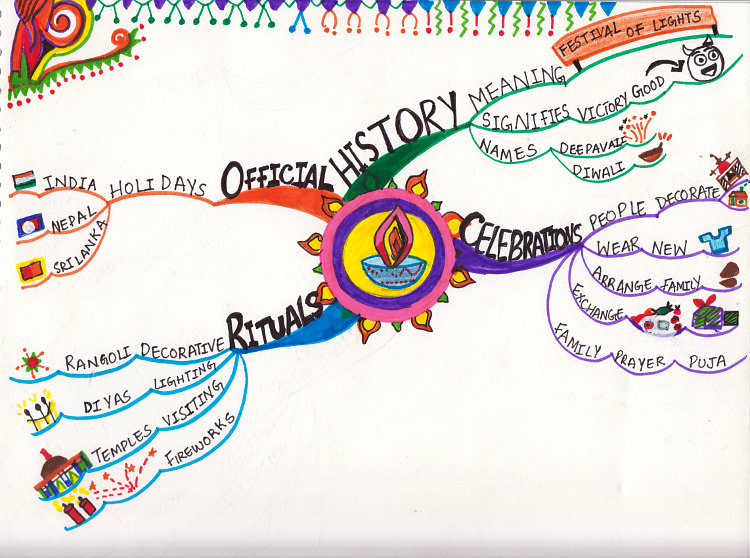 FESTIVAL OF LIGHTS
HISTORY
MEANING
SIGNIFIES VICTORY GOOD
NAMES
DEEPAVALI
DIWALI
OFFICIAL
HOLIDAYS
INDIA
NEPAL
SRILANKA
CELEBRATIONS
PEOPLE DECORATE
WEAR NEW
ARRANGE FAMILY
EXCHANGE
FAMILY PRAYER PUJA
RITUALS
RANGOLI DECORATIVE
DIYAS LIGHTING
TEMPLES VISITING
FIREWORKS